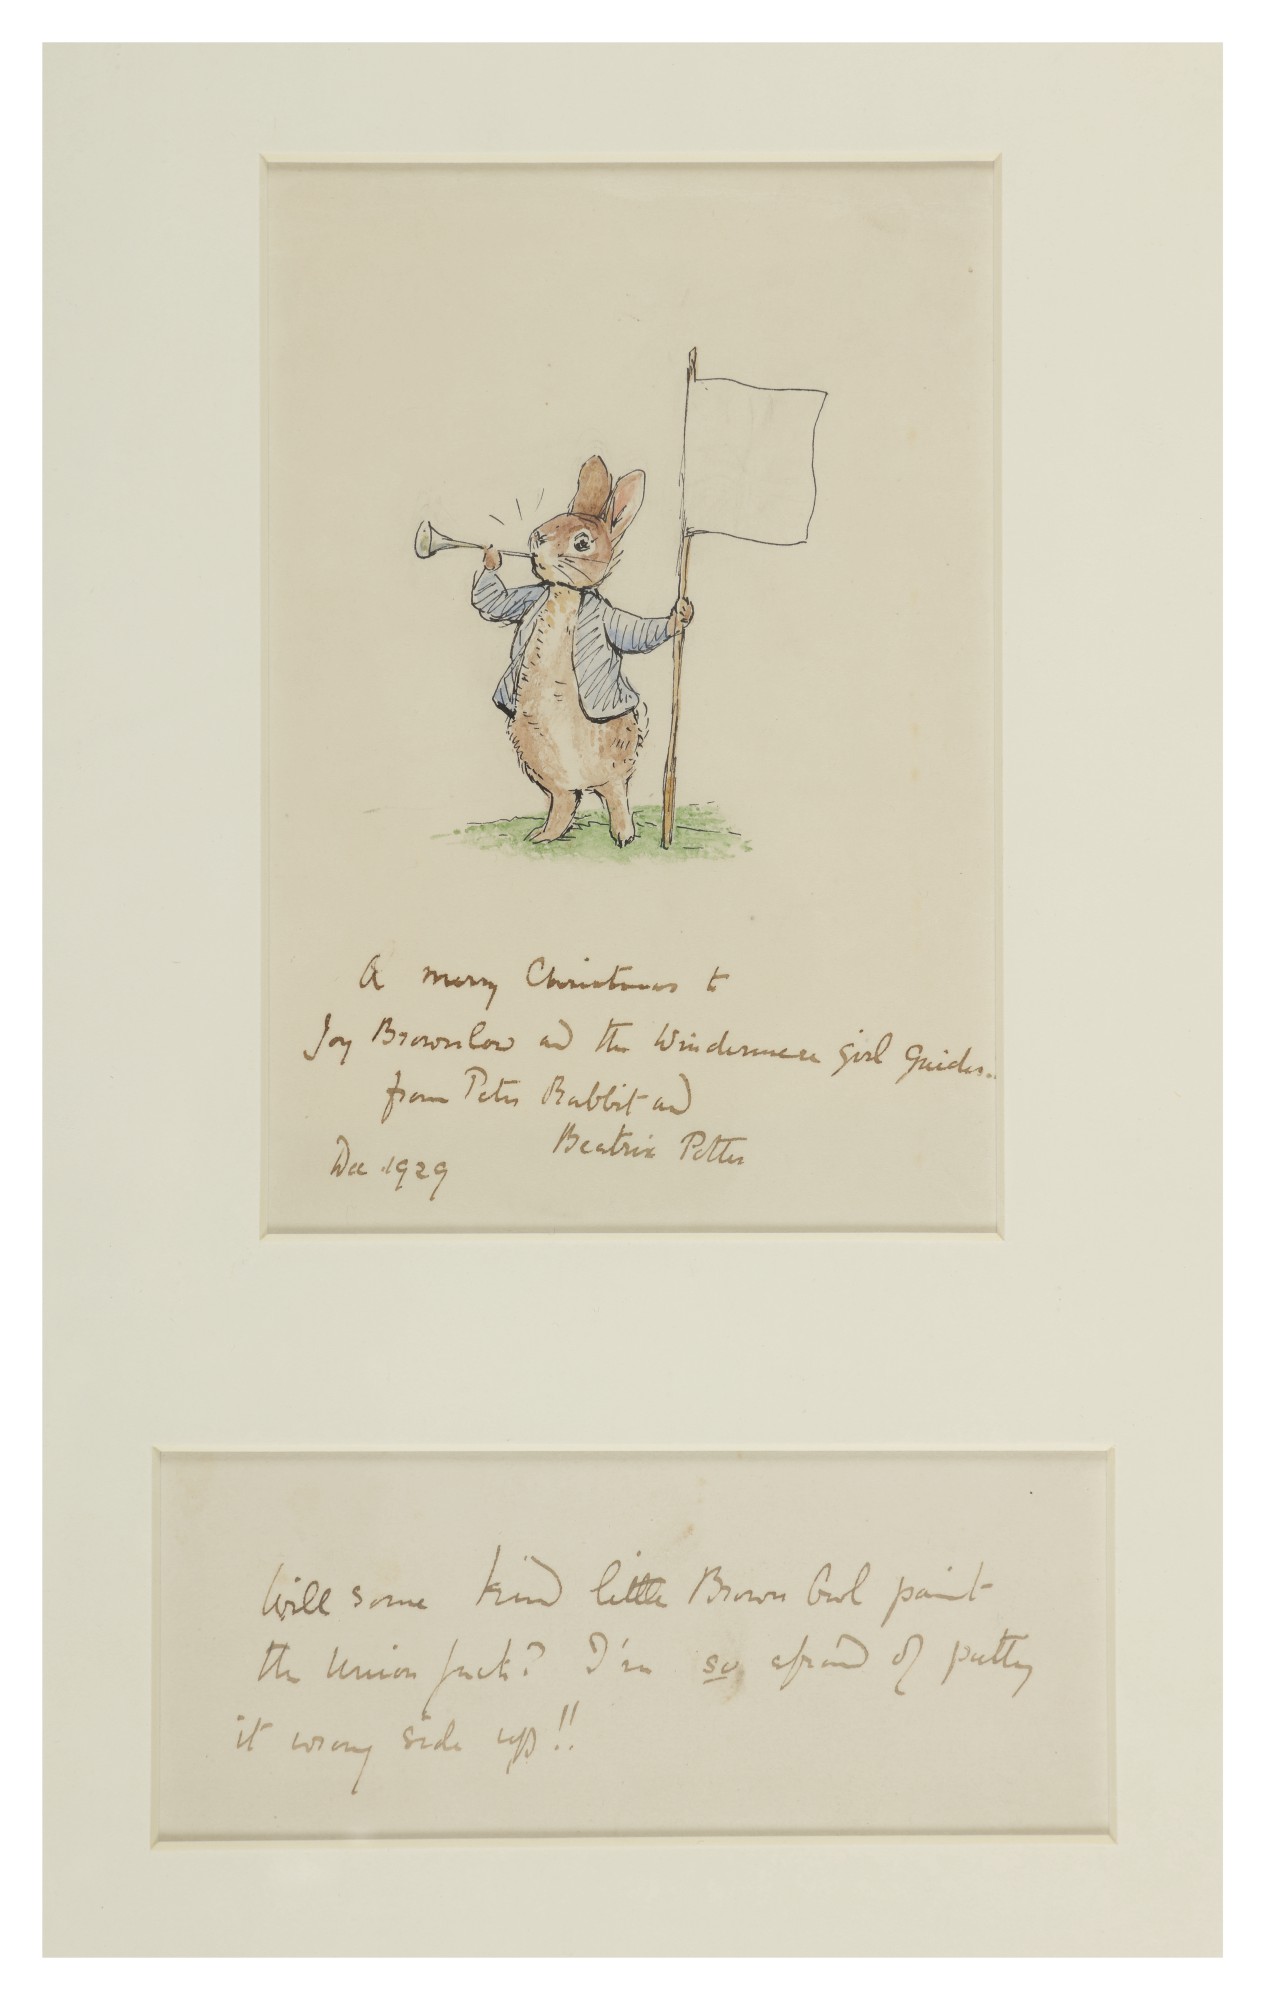 A merry Christmas to
Joy Brownlow and the Windermere Girl Guides..
from Peter Rabbit and
Beatrix Potter
Dec. 1929
Will some kind little Brown Owl paint
the Union Jack? I'm so afraid of putting
it wrong side up!!